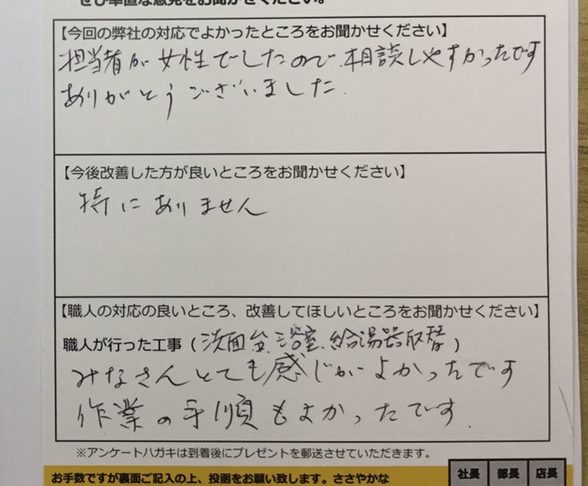 ぜひ率直な意見をお聞かせください。
【今回の弊社の対応でよかったところをお聞かせください】
担当者が女性でしたので、相談しやすかったです
ありがとうございました.
【今後改善した方が良いところをお聞かせください】
特にありません
【職人の対応の良いところ、改善してほしいところをお聞かせください】
職人が行った工事（洗面台、浴室、給湯器取替）
みなさんとても感じがよかったです
作業の手順もよかったです.
※アンケートハガキは到着後にプレゼントを郵送させていただきます。
お手数ですが裏面ご記入の上、投函をお願い致します。ささやかな
社長 部長 店長